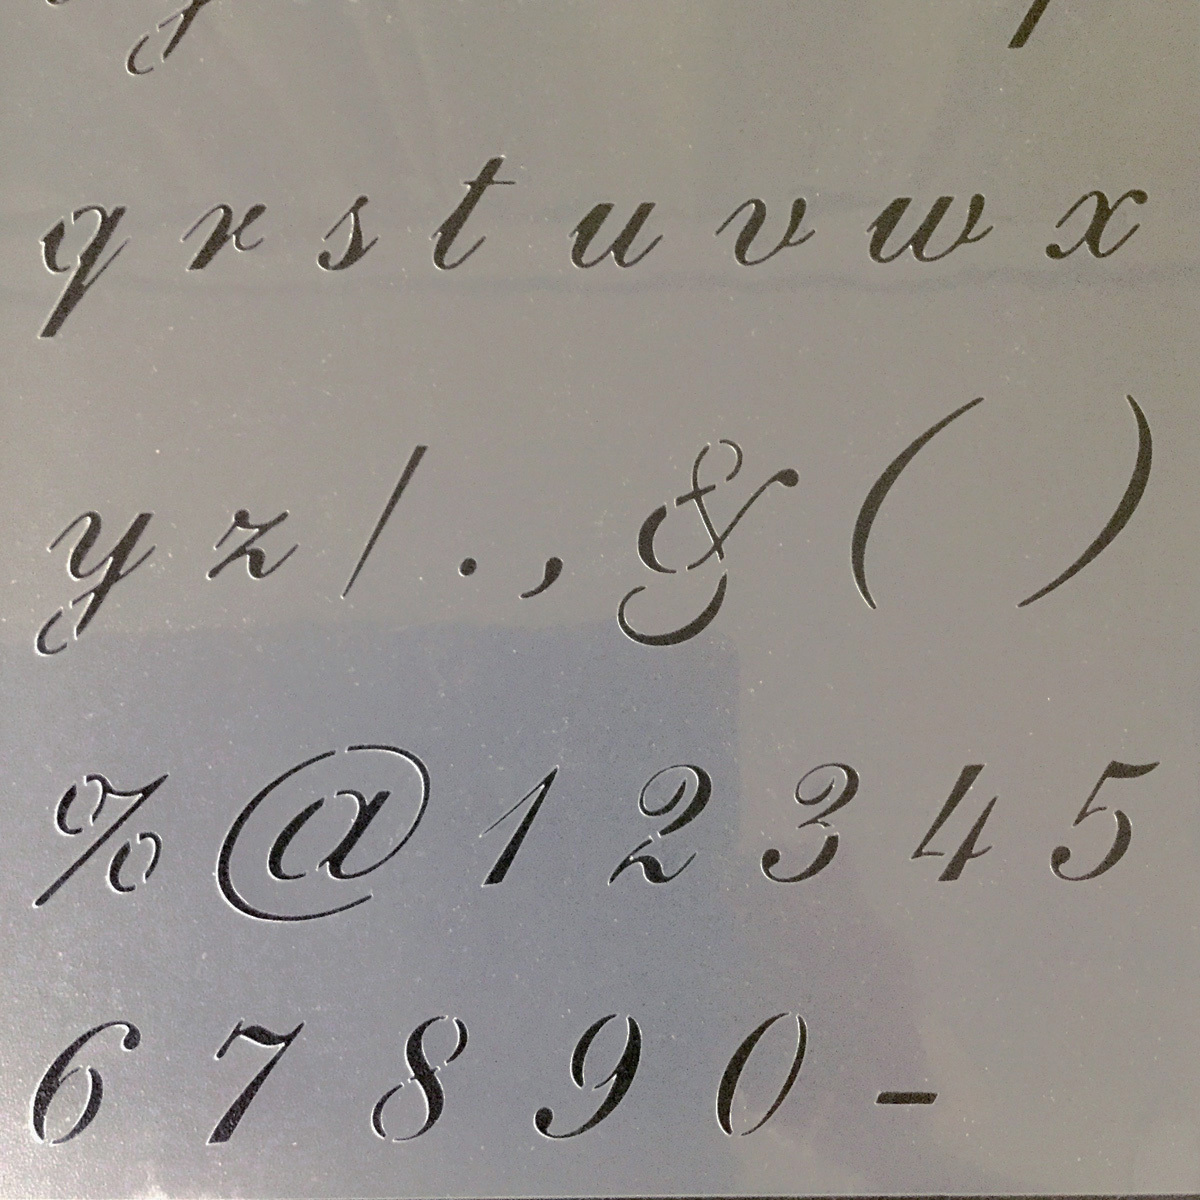 q r s t u v w x
y z / . , & ( )
% @ 1 2 3 4 5
6 7 8 9 0 -